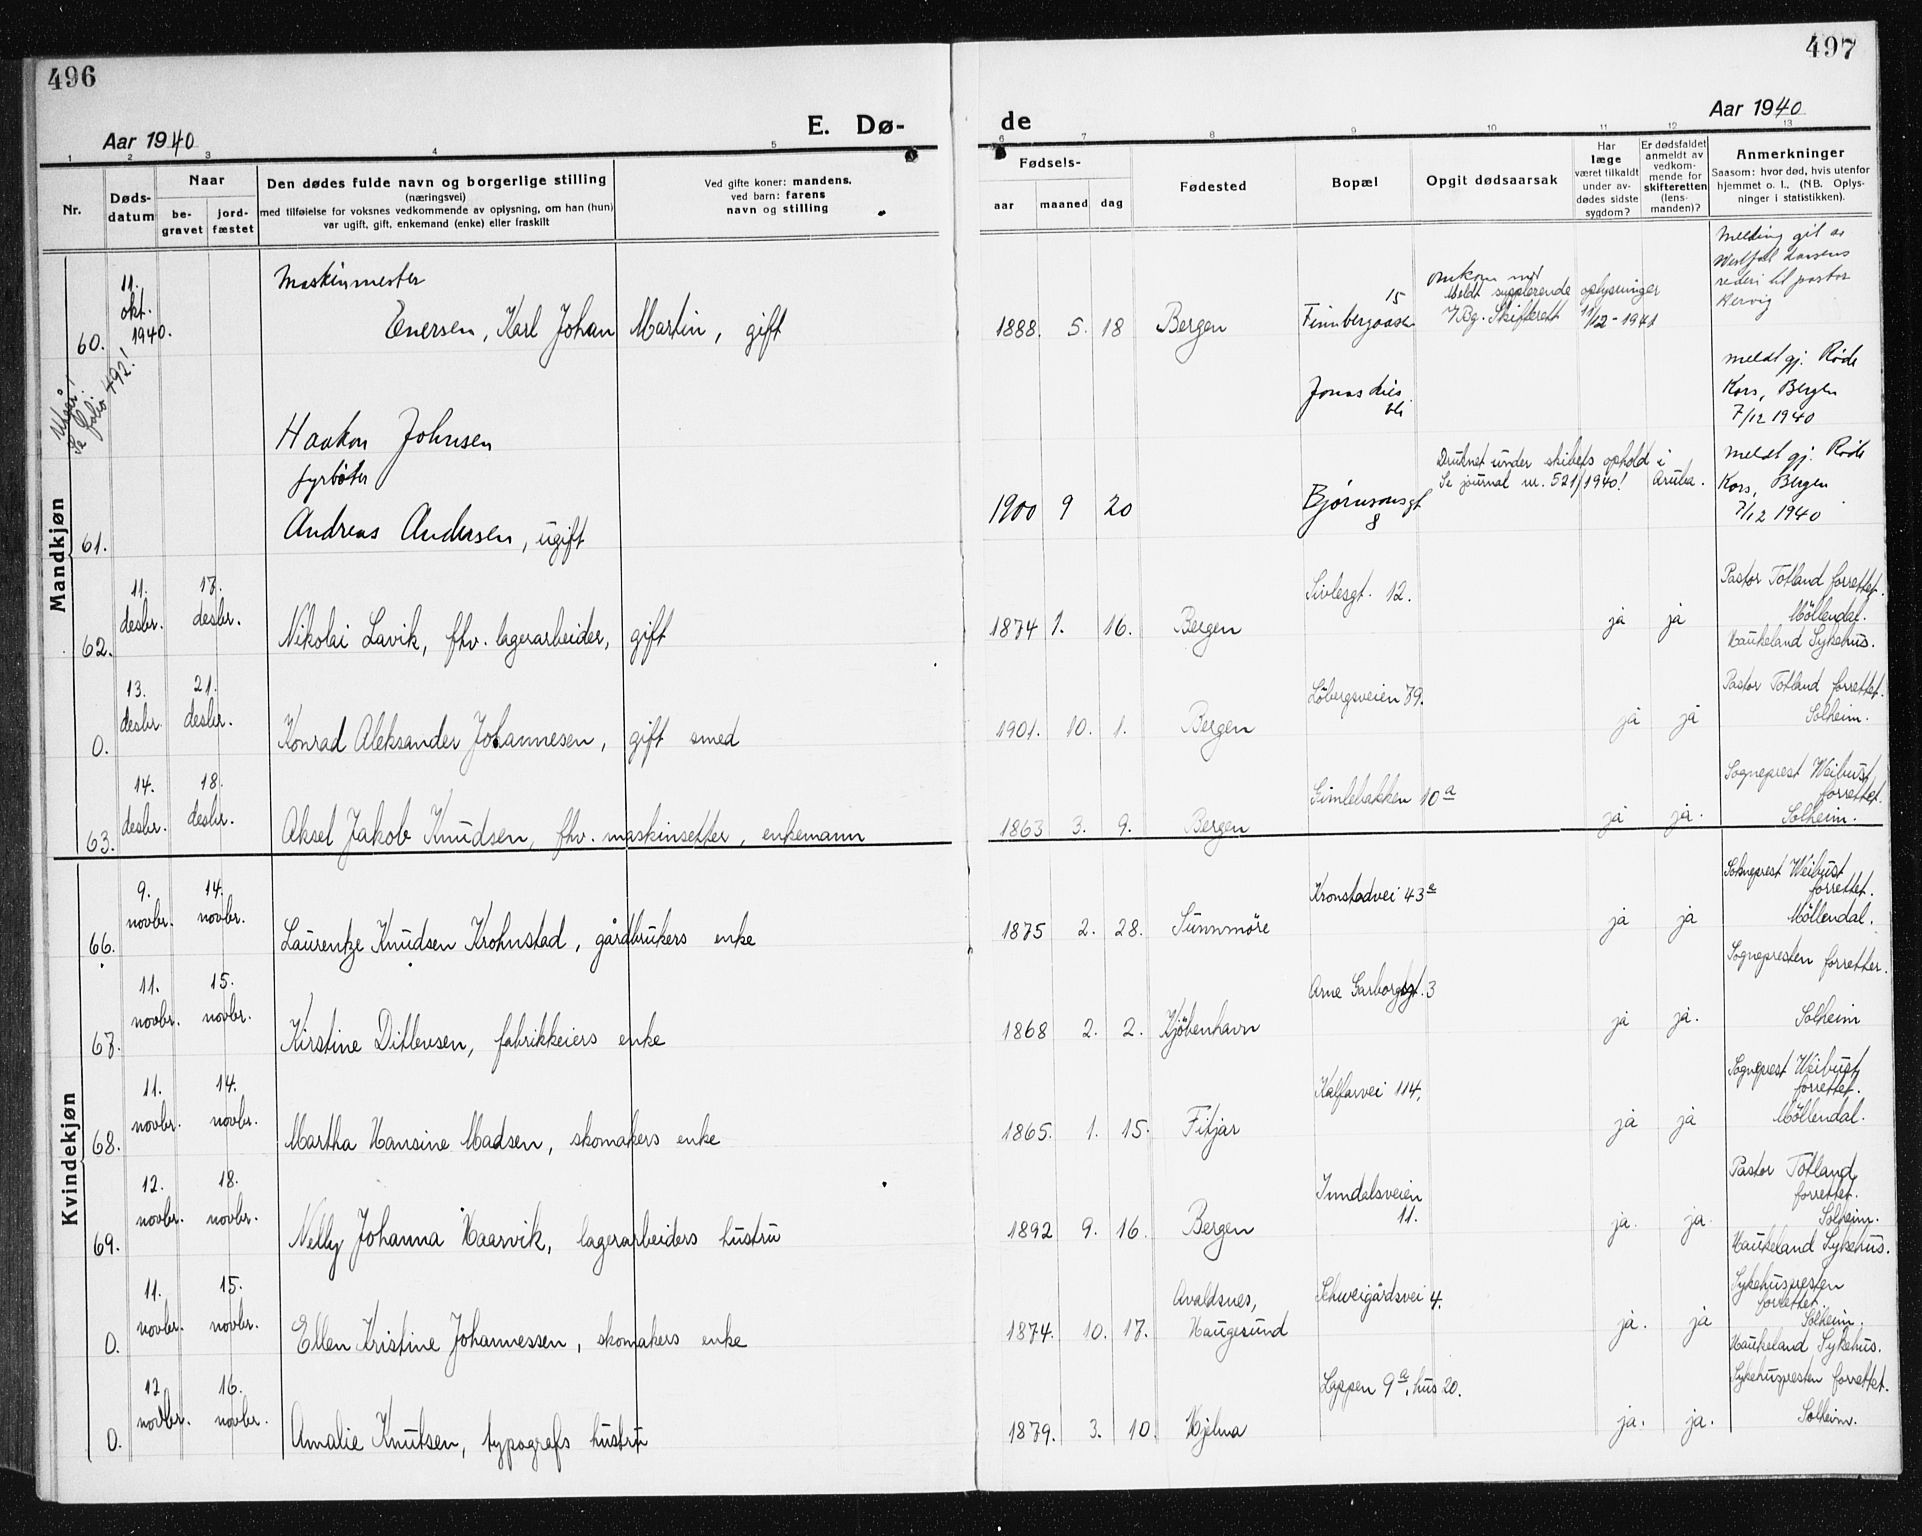 496
497
Aar 1940
E. Dø-
de
Aar 1940
1 2 3 4 5
6 7 8 9 10 11 12 13
Nr.
Døds-
datum
Naar
be-
gravet
jord-
fæstet
Den dødes fulde navn og borgerlige stilling
(næringsvei)
med tilføielse for voksnes vedkommende av oplysning, om han (hun)
var ugift, gift, enkemand (enke) eller fraskilt
Ved gifte koner: mandens,
ved barn: farens
navn og stilling
Fødsels-
aar maaned dag
Fødested
Bopæl
Opgit dødsaarsak
Har
læge
været tilkaldt
under av-
dødes sidste
sygdom?
Er dødsfaldet
anmeldt av
vedkom-
mende for
skifteretten
(lens-
manden)?
Anmerkninger
Saasom: hvor død, hvis utenfor
hjemmet o. l., (NB. Oplys-
ninger i statistikken).
Mandkjøn
60.
11.
okt.
1940.
Maskinmester
Enersen, Karl Johan Martin, gift
1888. 5. 18 Bergen
15
Finnbergaasen
Omkom ved
Meldt supplerende oplysninger
Bg. Skifterett 11/12 - 1941
Melding git av
Westfal Larsens
rederi til pastor
Utgår!
Se folio 492!
Haakon Johnsen
Jonas Lies
vei
meldt gj. Røde
Kors, Bergen
7/12 1940
61.
fyrbøter
Andreas Andersen, ugift
1900 9 20
Bjørnsonsgt
8
Druknet under skibets ophold i
Se journal nr. 521/1940! Aruba.
meldt gj. Røde
Kors, Bergen
7/12 1940
62.
11.
desbr.
17.
desbr.
Nikolai Lavik, fhv. lagerarbeider, gift
1874 1. 16. Bergen
Sivlesgt. 12.
ja ja
Pastor Totland forrettet.
Möllendal.
Haukeland Sykehus.
0.
13.
desbr.
21.
desbr.
Konrad Aleksander Johannesen, gift smed
1901. 10. 1. Bergen
Löbergsveien 79.
ja ja
Pastor Totland forrettet.
Solheim.
63.
14.
desbr.
18.
desbr.
Aksel Jakob Knudsen, fhv. maskinsetter, enkemann
1863 3. 9. Bergen
Gimlebakken 10 a
ja ja.
Sogneprest Weibust
forrettet.
Solheim.
Kvindekjøn
66.
9.
novbr.
14.
novbr.
Laurentze Knudsen Krohnstad, gårdbrukers enke
1875 2. 28. Sunnmöre
Kronstadvei 43 a
ja ja
Sokneprest Weibust
forrettet.
Möllendal.
67.
11.
novbr.
15.
novbr.
Kirstine Ditlevsen, fabrikkeiers enke
1868 2. 2. Kjöbenhavn
Arne Garborgsgt. 3
ja ja.
Sognepresten forretter.
Solheim
68.
11.
novbr.
14.
novbr.
Martha Hansine Madsen, skomakers enke
1865. 1. 15. Fitjar
Kalfarvei 114,
ja ja
Sogneprest Weibust
forrettet.
Möllendal.
69.
12.
novbr.
18.
novbr.
Nelly Johanna Haarvik, lagerarbeiders hustru
1892 9. 16. Bergen
Inndalsveien
11.
ja. ja.
Pastor Totland
forrettet.
Solheim.
Haukeland Sykehus.
0.
11.
novbr.
15.
novbr.
Ellen Kristine Johannessen, skomakers enke
1874. 10. 17.
Avaldsnes,
Haugesund
Schweigårdsvei 4.
ja. ja
Sykehuspresten
forrettet.
Solheim.
Haukeland Sykehus.
0.
12
novbr.
16.
novbr.
Amalie Knutsen, typografs hustru
1879. 3. 10. Hjelma
Lappen 9 a, hus 20.
ja. ja.
Sykehuspresten forrettet.
Solheim.